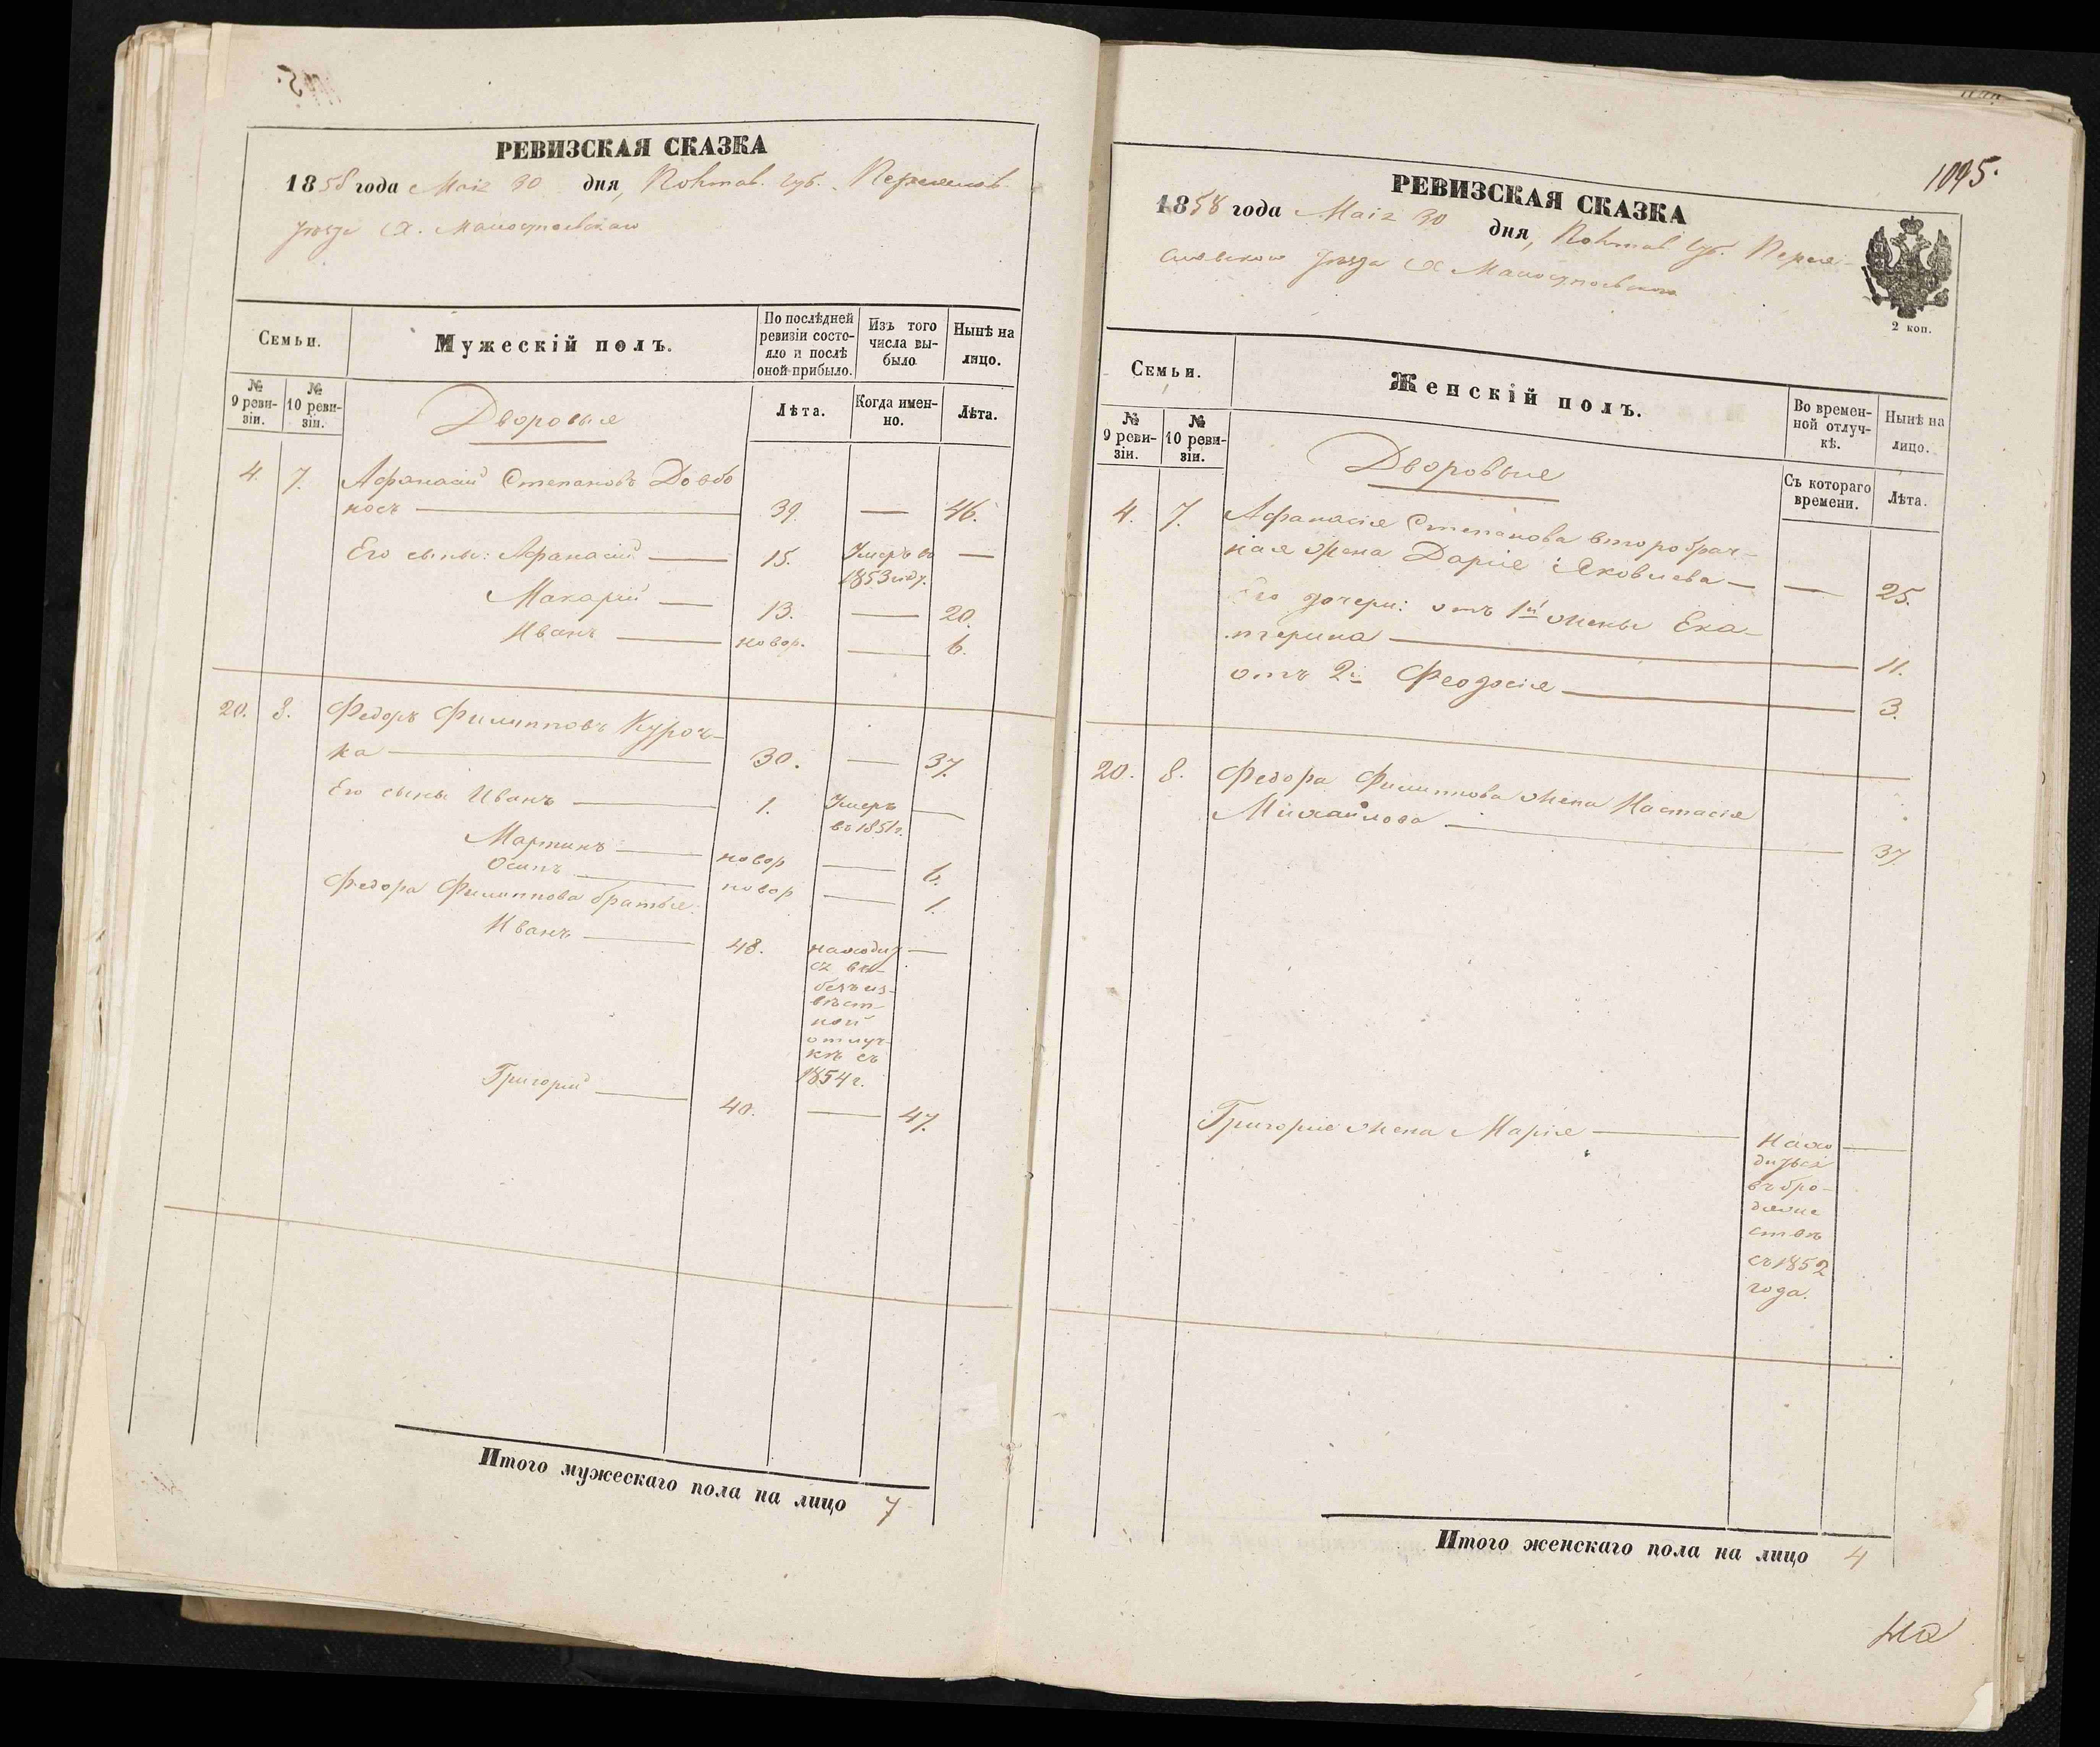 РЕВИЗСКАЯ СКАЗКА
1858 года Маія 30 дня, Полтав. губ. Переяслов.
уѣзда Х. Малосупоевскаго
Семьи.
Мужескій полъ.
По послѣдней ревизіи состояло и послѣ оной прибыло.
Изъ того числа выбыло
Нынѣ на лицо.
№ 9 ревизіи.
№ 10 ревизіи.
Дворовые
Лѣта.
Когда именно.
Лѣта.
4. 7. Афанасій Степановъ Довбо
носъ — 39. — 46.
Его сыны: Афанасій — 15. Умеръ въ 1853 году. —
Макарій — 13. — 20.
Иванъ — новор. — 6.
20. 8. Федоръ Филипповъ Куроч-
ка — 30. — 37.
Его сыны Иванъ — 1. Умеръ въ 1851 г. —
Мартинъ — новор — 6.
Осипъ — новор — 1.
Федора Филиппова братья:
Иванъ — 48. находит —
ся въ
безъиз-
вѣст-
ной
отлуч-
кѣ съ
1854 г.
Григорій — 40. — 47.
Итого мужескаго пола на лицо 7
1095.
РЕВИЗСКАЯ СКАЗКА
1858 года Маія 30 дня, Полтав губ. Перея-
словскаго уѣзда Х Малосупоевскаго
2 коп.
Семьи.
Женскій полъ.
Во временной отлучкѣ.
Нынѣ на лицо.
№ 9 ревизіи.
№ 10 ревизіи.
Дворовые
Съ котораго времени.
Лѣта.
4. 7. Афанасія Степанова второбрач-
ная жена Дарія Яковлева — — 25.
Его дочери: отъ 1й жены Ека-
терина — 11.
отъ 2й Феодосія — 3.
20. 8. Федора Филиппова жена Настасія
Михайлова — 37
Григорія жена Марія — Нахо —
диться
въ бро-
дяже
ствѣ
съ 1852
года.
Итого женскаго пола на лицо 4